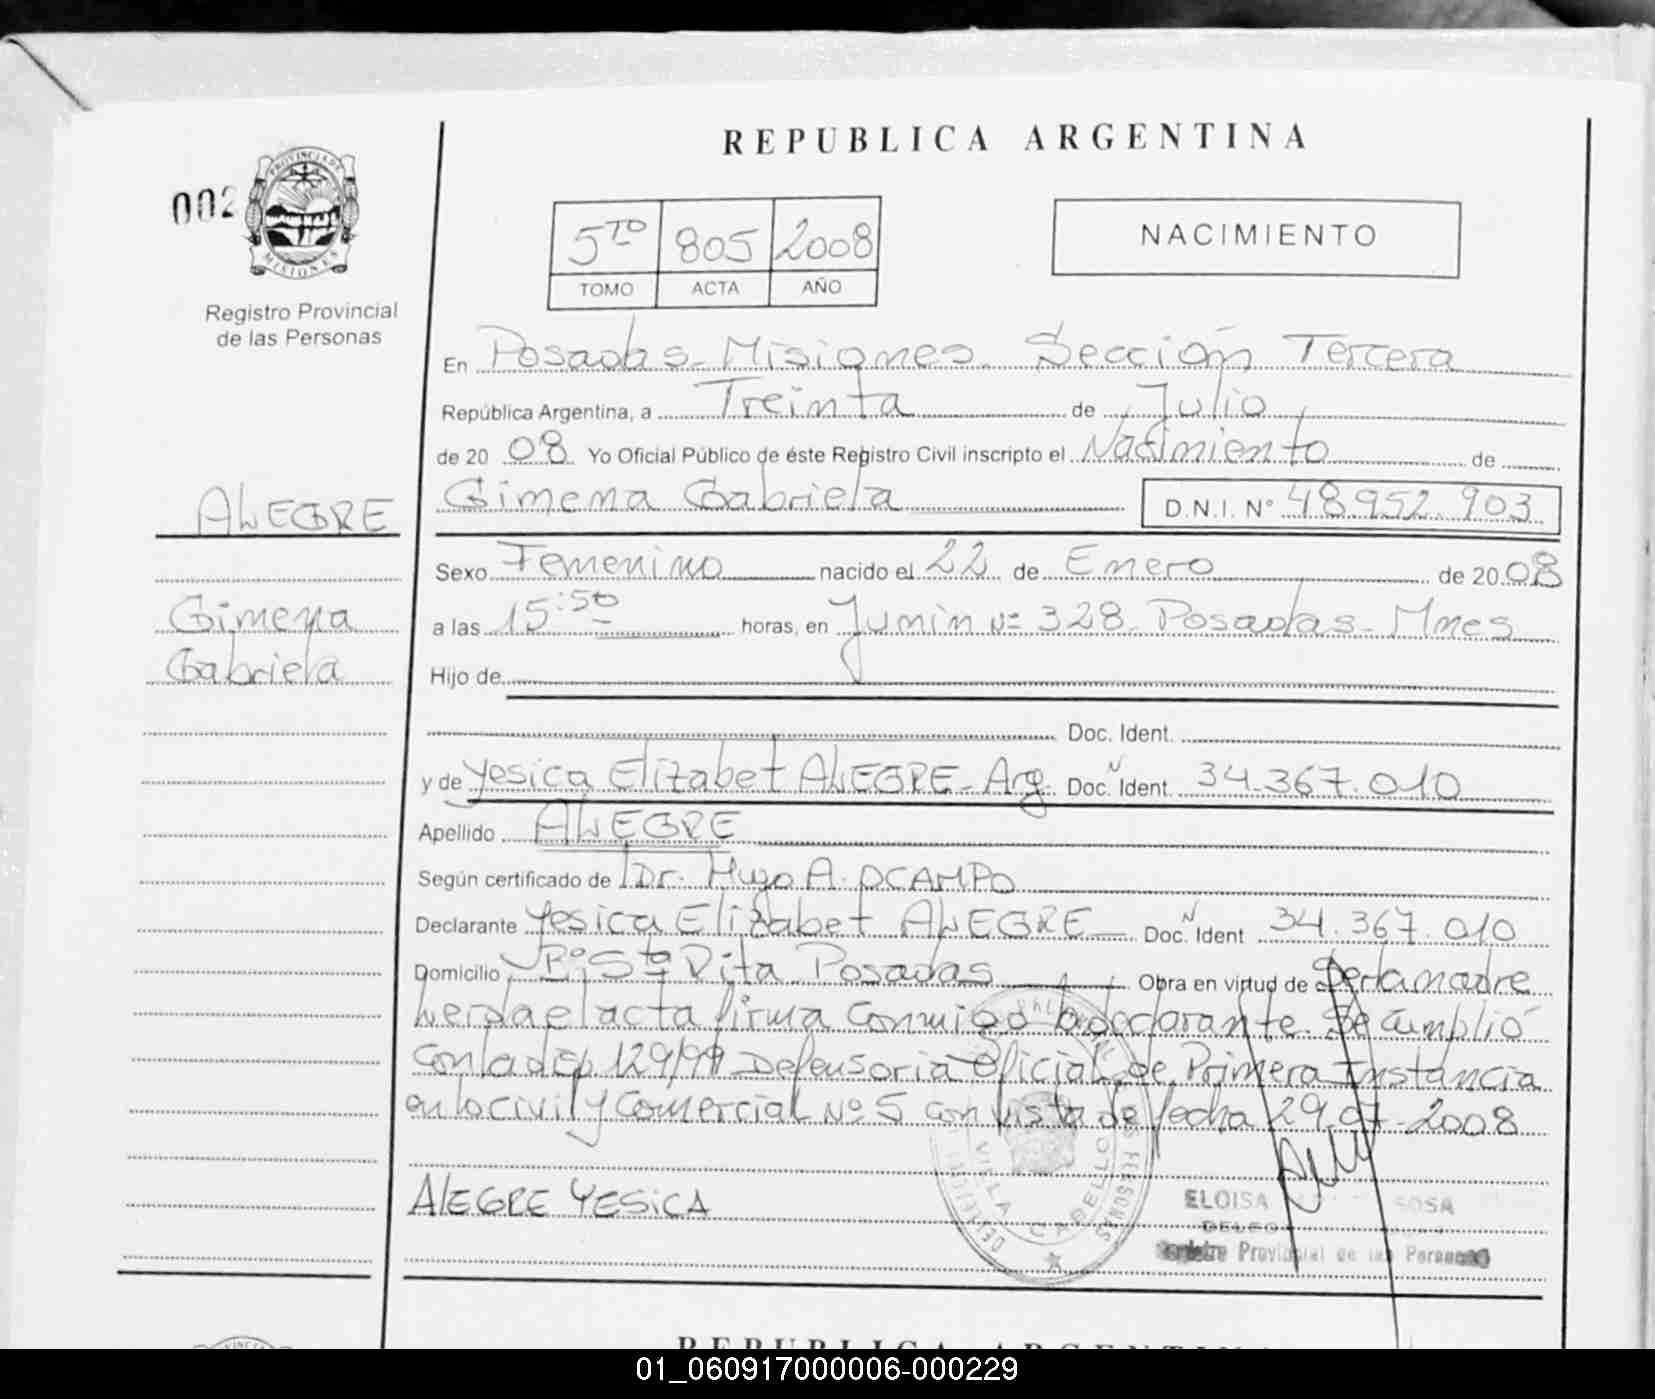 REPUBLICA ARGENTINA
002
PROVINCIA DE
MISIONES
Registro Provincial
de las Personas
5TO 805 2008
TOMO ACTA AÑO
NACIMIENTO
En Posadas-Misiones- Sección Tercera
República Argentina, a Treinta de Julio
de 20 08 Yo Oficial Público de éste Registro Civil inscripto el Nacimiento de
Gimena Gabriela D.N.I. Nº 48.952.903
ALEGRE
Sexo Femenino nacido el 22 de Enero de 20 08
Gimena
a las 15:50 horas, en Junin Nº 328- Posadas- Mnes
Gabriela
Hijo de
Doc. Ident.
y de Yesica Elizabet ALEGRE- Arg. Doc. N Ident. 34.367.010
Apellido ALEGRE
Según certificado de Dr. Hugo A. OCAMPO
Declarante Yesica Elizabet ALEGRE Doc. N Ident 34.367.010
Domicilio Bº Sta Rita Posadas Obra en virtud de Ser la madre
Leida el acta firma conmigo la declarante. Se cumplió
con la disp 129/99 Defensoria Oficial de Primera Instancia
en lo civil y Comercial Nº 5 con vista de fecha 29.07.2008
ALEGRE YESICA
VILLA CABELLO
ELOISA SOSA
Registro Provincial de las Personas
REPUBLICA ARGENTINA
01_060917000006-000229